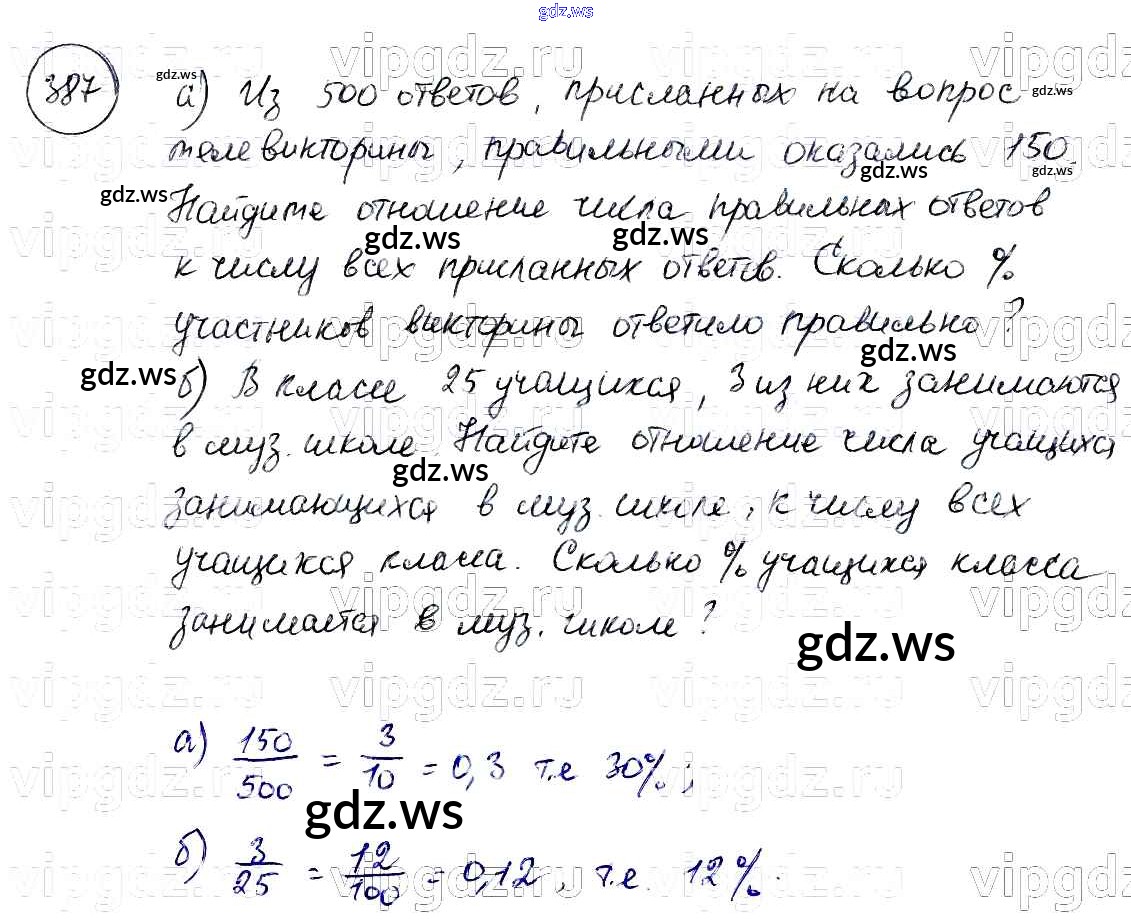 387 а) Из 500 ответов, присланных на вопрос
телевикторины, правильными оказались 150.
Найдите отношение числа правильных ответов
к числу всех присланных ответов. Сколько %
участников викторины ответило правильно?
б) В классе 25 учащихся, 3 из них занимаются
в муз. школе. Найдите отношение числа учащихся
занимающихся в муз. школе, к числу всех
учащихся класса. Сколько % учащихся класса
занимается в муз. школе?
а) 150/500 = 3/10 = 0,3 т.е 30%;
б) 3/25 = 12/100 = 0,12, т.е. 12%.
gdz.ws
vipgdz.ru